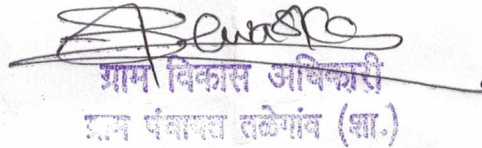 ग्राम विकास अधिकारी
ग्राम पंचायत तळेगांव (शा.)